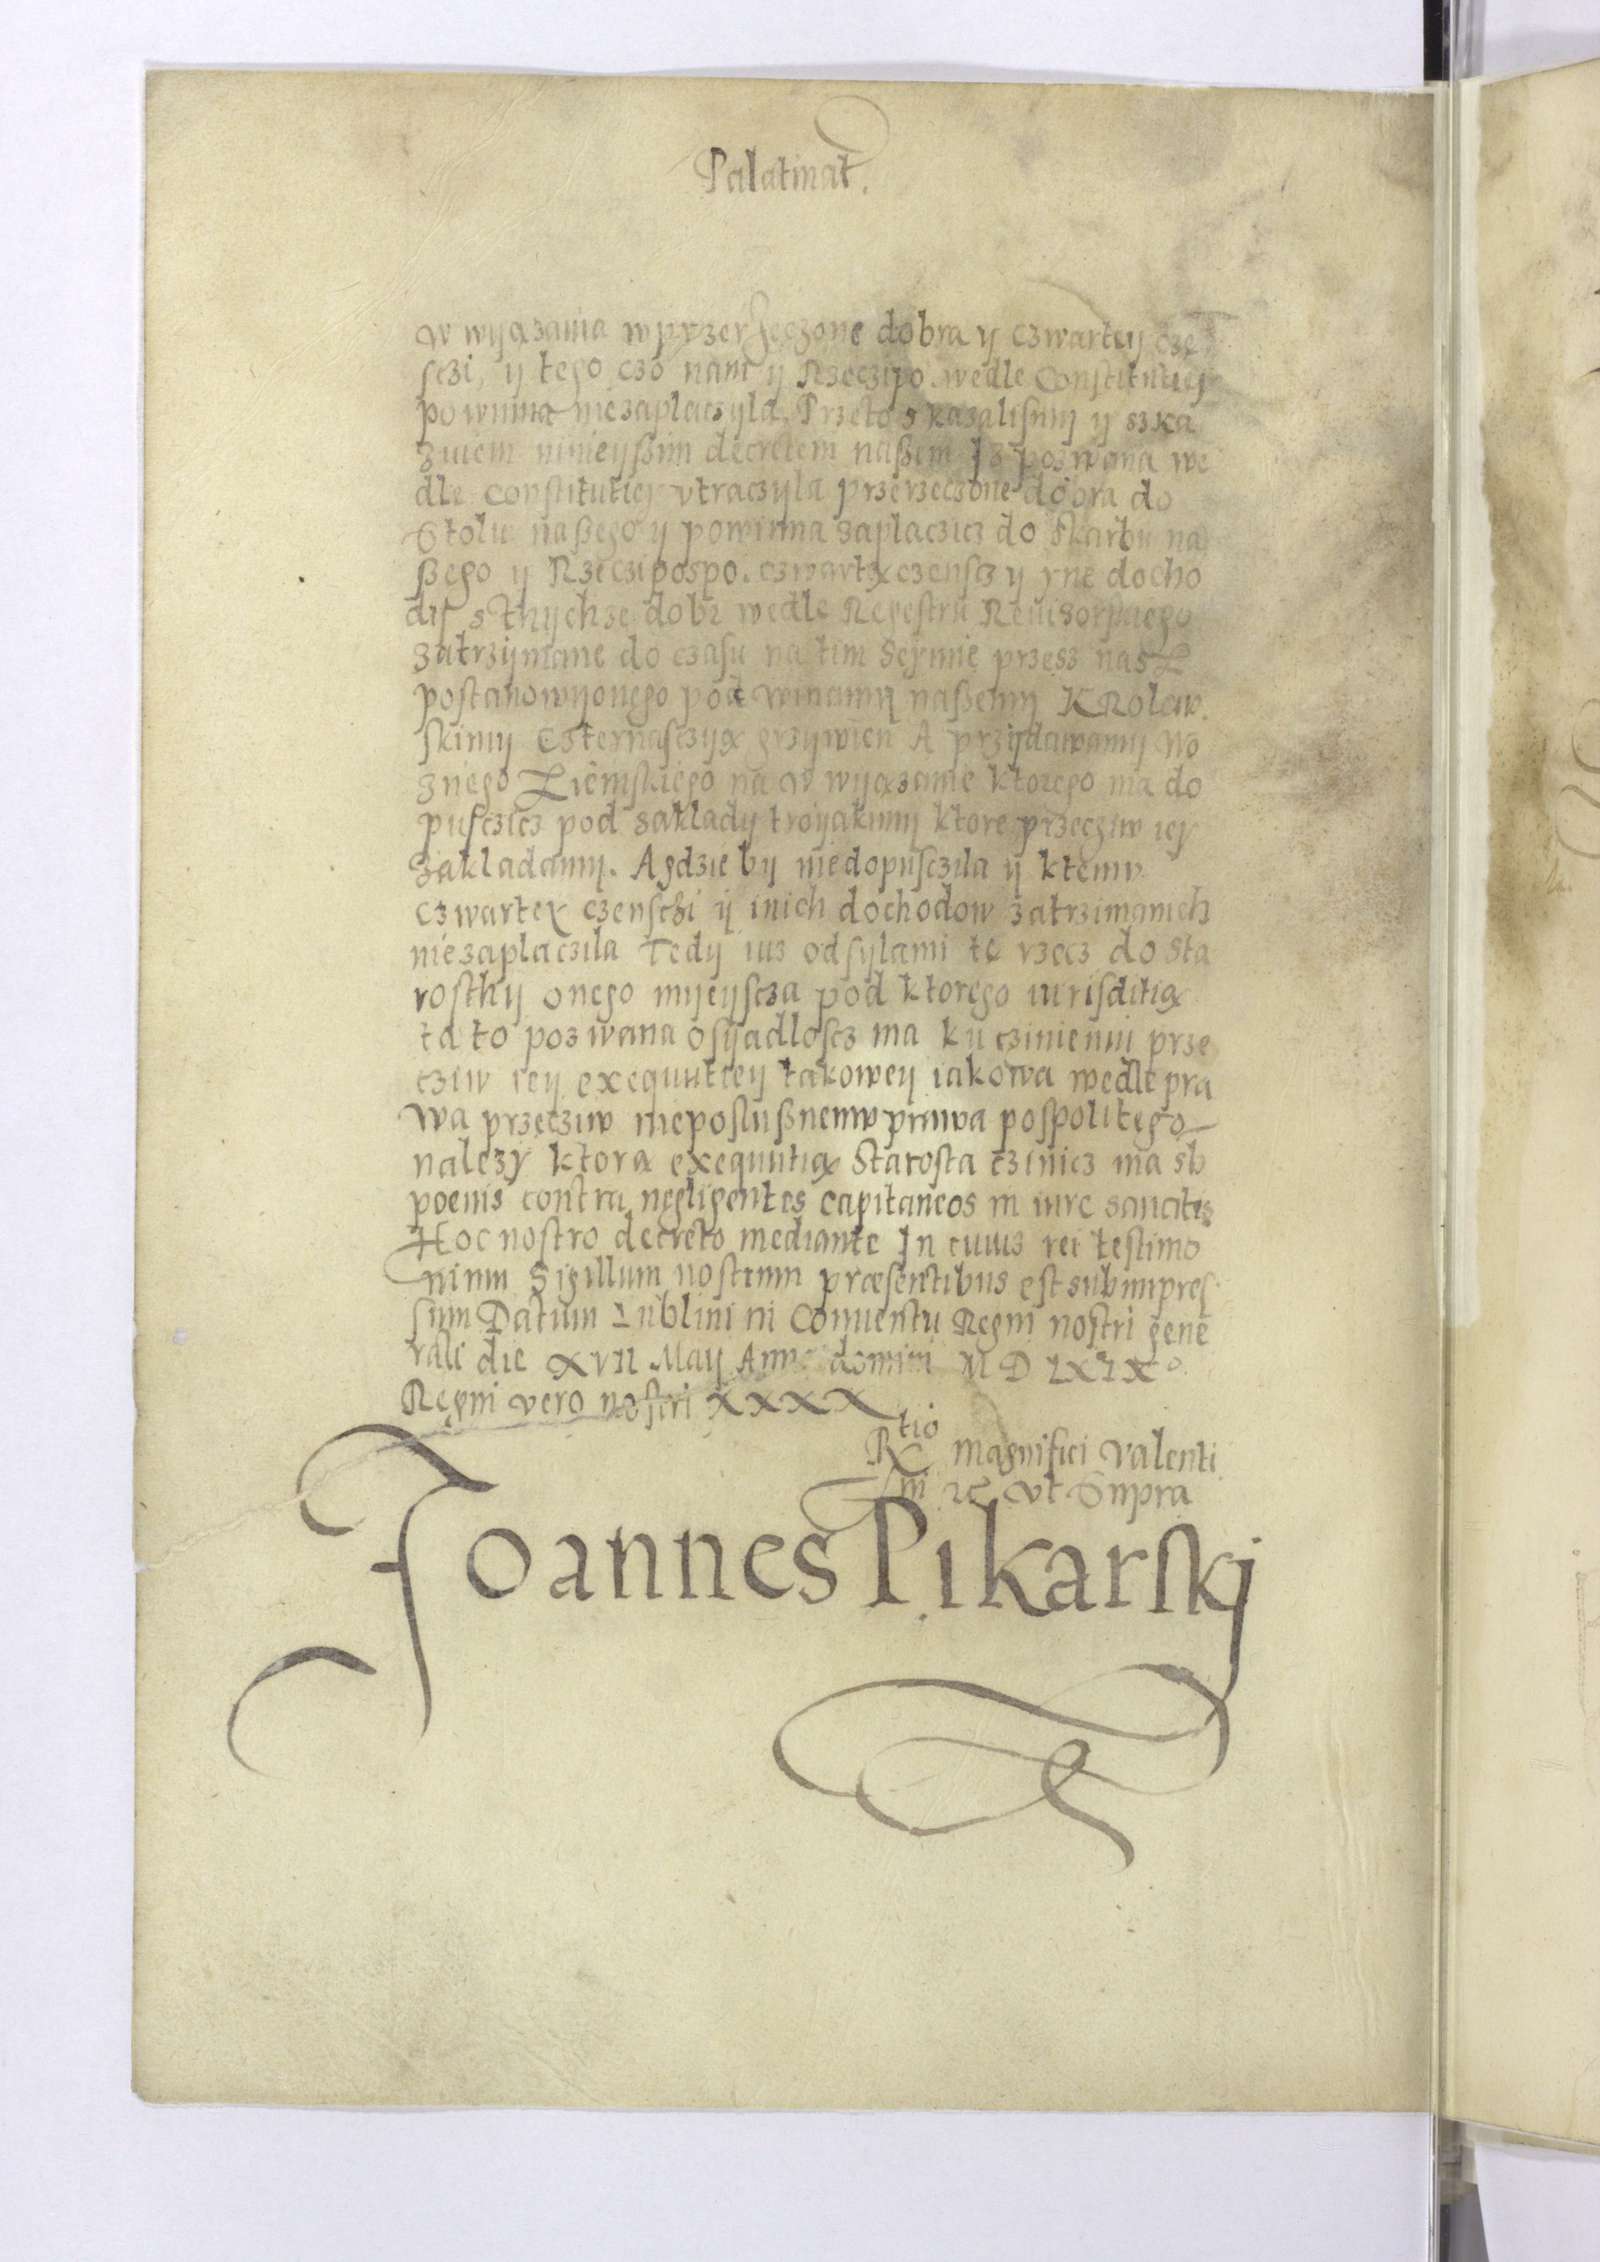 Palatinat.
W wyązania wprzerzeczone dobra y czwartey czę
sczi, y tego czo nam y Rzeczipo. wedle Constitutiey
powinna niezaplaczyla, Przeto skazalismy y szka
zuiem ninieyßim decretem naßem Iz pozwana we
dle Constitutiey vtraczyla przerzeczone dobra do
Stolu naßego y powinna zaplaczicz do Skarbu na
ßego y Rzeczipospo. czwartą czenscz y yne docho
di s thychze dobr wedle Regestru Reuisorskiego
zatrzymane do czasu na tim Seymie przesz nas
postanowyonego pod winamy naßemy KRolew
skimy Czternasczyą grzywien A przydawamy Wo
znego Ziemskiego na W wyązanie ktorego ma do
pusczicz pod zaklady troyakimy ktore przecziw iey
zakladamy. A gdzie by niedopusczila y ktemv
Czwartey czensczi y inich dochodow zatrzimanich
niezaplaczila Tedy iuz odsylami tę rzecz do Sta
rosthy onego myeyscza pod ktorego iurisditią
ta to pozwana osyadloscz ma ku czinieniu prze
cziw iey exequutiey takowey iakowa wedle pra
wa przecziw nieposlußnemw prawa pospolitego
nalezy ktorą exequutią Starosta czinicz ma sb
poenis contra negligentes capitaneos in iure sancitis
Hoc nostro decreto mediante In cuius rei testimo
nium Sigillum nostrum præsentibus est subimpres
sum Datum Lublini in Conuentu Regni nostri gene
rali die XVII Maij Anno domini M D LXIX°
Regni vero nostri XXXX
Rtio Magnifici Valenti
ni ꝛc vt Supra
Joannes Pikarskj